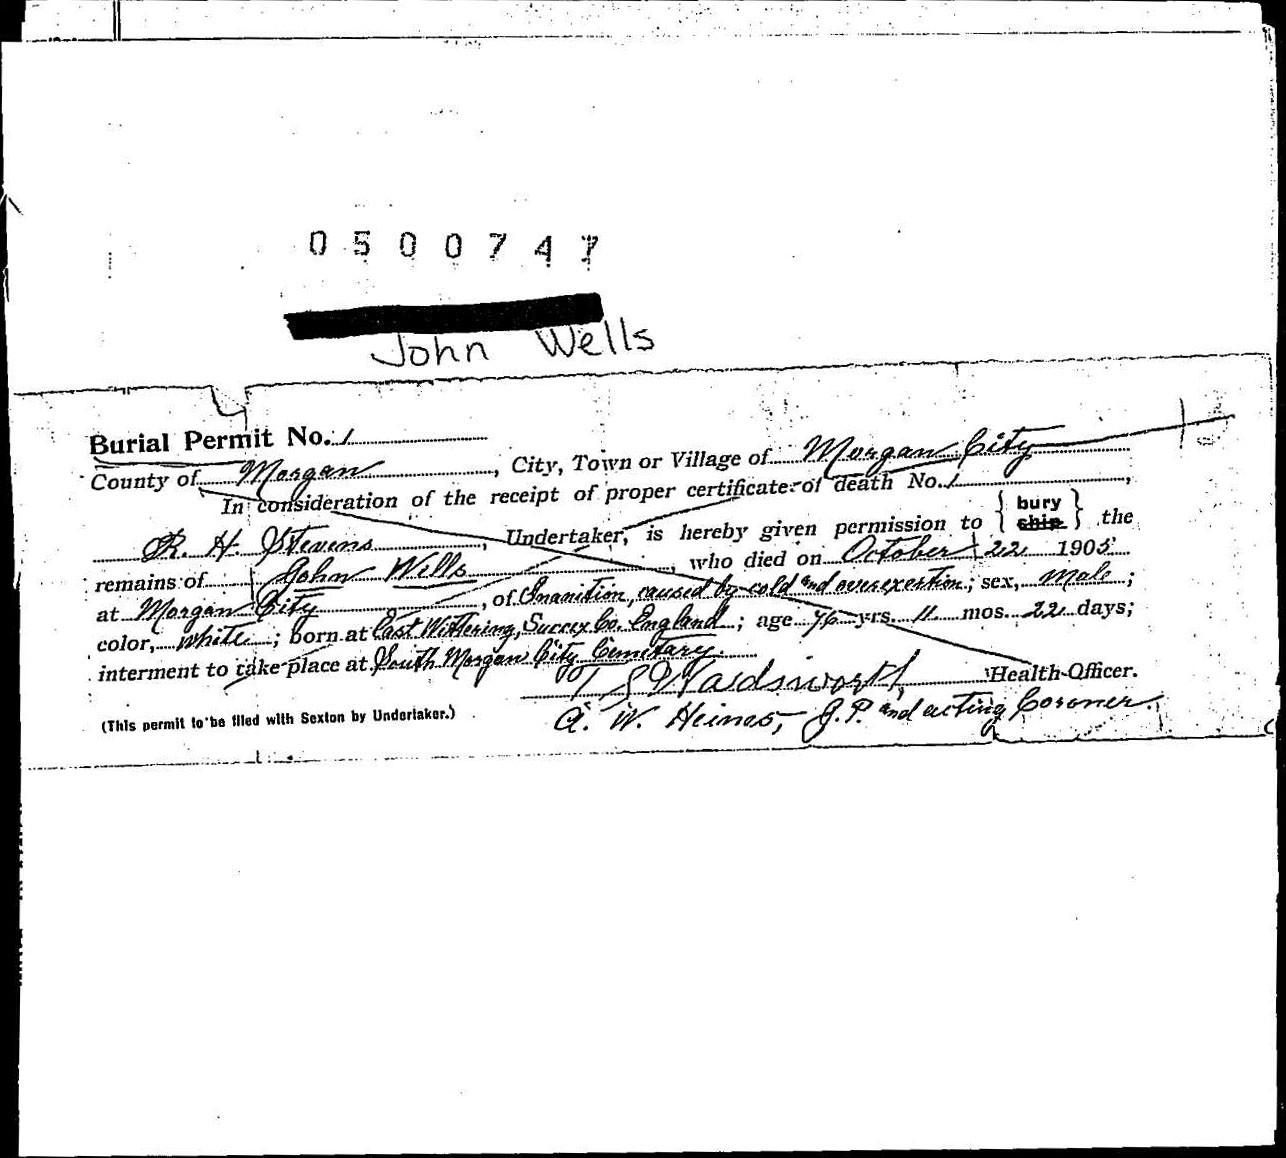 0500747
John Wells
Burial Permit No. 1
County of Morgan, City, Town or Village of Morgan City
In consideration of the receipt of proper certificate of death No. 1,
R. H. Stevens, Undertaker, is hereby given permission to { bury ship } the
remains of John Wills, who died on October 22 1905
at Morgan City, of Inanition, caused by cold and overexertion; sex, Male;
color, White; born at East Wittering, Sussex Co. England; age 76 yrs. 11 mos. 22 days;
interment to take place at South Morgan City Cemetary.
T S Wadsworth, Health Officer.
(This permit to be filed with Sexton by Undertaker.)
A. W. Heiness, J.P. and acting Coroner.